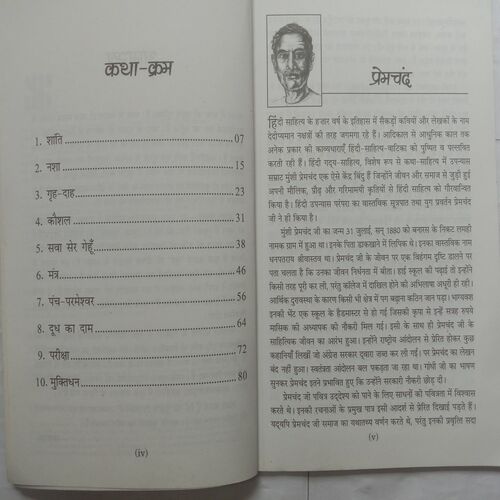 कथा-क्रम
1. शांति 07
2. नशा 15
3. गृह-दाह 23
4. कौशल 31
5. सवा सेर गेहूँ 38
6. मंत्र 46
7. पंच-परमेश्वर 56
8. दूध का दाम 64
9. परीक्षा 72
10. मुक्तिधन 80
(iv)
प्रेमचंद
हिंदी साहित्य के हजार वर्ष के इतिहास में सैकड़ों कवियों और लेखकों के नाम
देदीप्यमान नक्षत्रों की तरह जगमगा रहे हैं। आदिकाल से आधुनिक काल तक
अनेक प्रकार की काव्यधाराएँ हिंदी-साहित्य-वाटिका को पुष्पित व पल्लवित
करती रही हैं। हिंदी गद्य-साहित्य, विशेष रूप से कथा-साहित्य में उपन्यास
सम्राट मुंशी प्रेमचंद एक ऐसे केंद्र बिंदु हैं जिन्होंने जीवन और समाज से जुड़ी हुई
अपनी मौलिक, प्रौढ़ और गरिमामयी कृतियों से हिंदी साहित्य को गौरवान्वित
किया है। हिंदी उपन्यास परंपरा का वास्तविक सूत्रपात तथा युग प्रवर्तन प्रेमचंद
जी ने ही किया।
मुंशी प्रेमचंद का जन्म 31 जुलाई, सन् 1880 को बनारस के निकट लमही
नामक ग्राम में हुआ था। इनके पिता डाकखाने में लिपिक थे। इनका वास्तविक नाम
धनपतराय श्रीवास्तव था। प्रेमचंद जी के जीवन पर एक विहंगम दृष्टि डालने पर
पता चलता है कि उनका जीवन निर्धनता में बीता। हाई स्कूल की पढ़ाई तो इन्होंने
किसी तरह पूरी कर ली, परंतु कॉलेज में दाखिल होने की अभिलाषा अधूरी ही रही।
आर्थिक दुरावस्था के कारण किसी भी क्षेत्र में पग बढ़ाना कठिन जान पड़ा। भाग्यवश
इनकी भेंट एक स्कूल के हैडमास्टर से हो गई जिसकी कृपा से इन्हें सत्रह रुपये
मासिक की अध्यापक की नौकरी मिल गई। इसी के साथ ही प्रेमचंद जी के
साहित्यिक जीवन का आरंभ हुआ। इन्होंने राष्ट्रीय आंदोलन से प्रेरित होकर कुछ
कहानियाँ लिखीं जो अंग्रेस सरकार द्वारा जब्त कर ली गईं। पर प्रेमचंद का लेखन
बंद नहीं हुआ। स्वतंत्रता आंदोलन बल पकड़ता जा रहा था। गांधी जी का भाषण
सुनकर प्रेमचंद इतने प्रभावित हुए कि उन्होंने सरकारी नौकरी छोड़ दी।
प्रेमचंद जी पवित्र उद्देश्य को पाने के लिए साधनों की पवित्रता में विश्वास
करते थे। इनकी रचनाओं के प्रमुख पात्र इसी आदर्श से प्रेरित दिखाई पड़ते हैं।
यद्यपि प्रेमचंद जी समाज का यथातथ्य वर्णन करते थे, परंतु इनकी प्रवृत्ति सदा
(v)